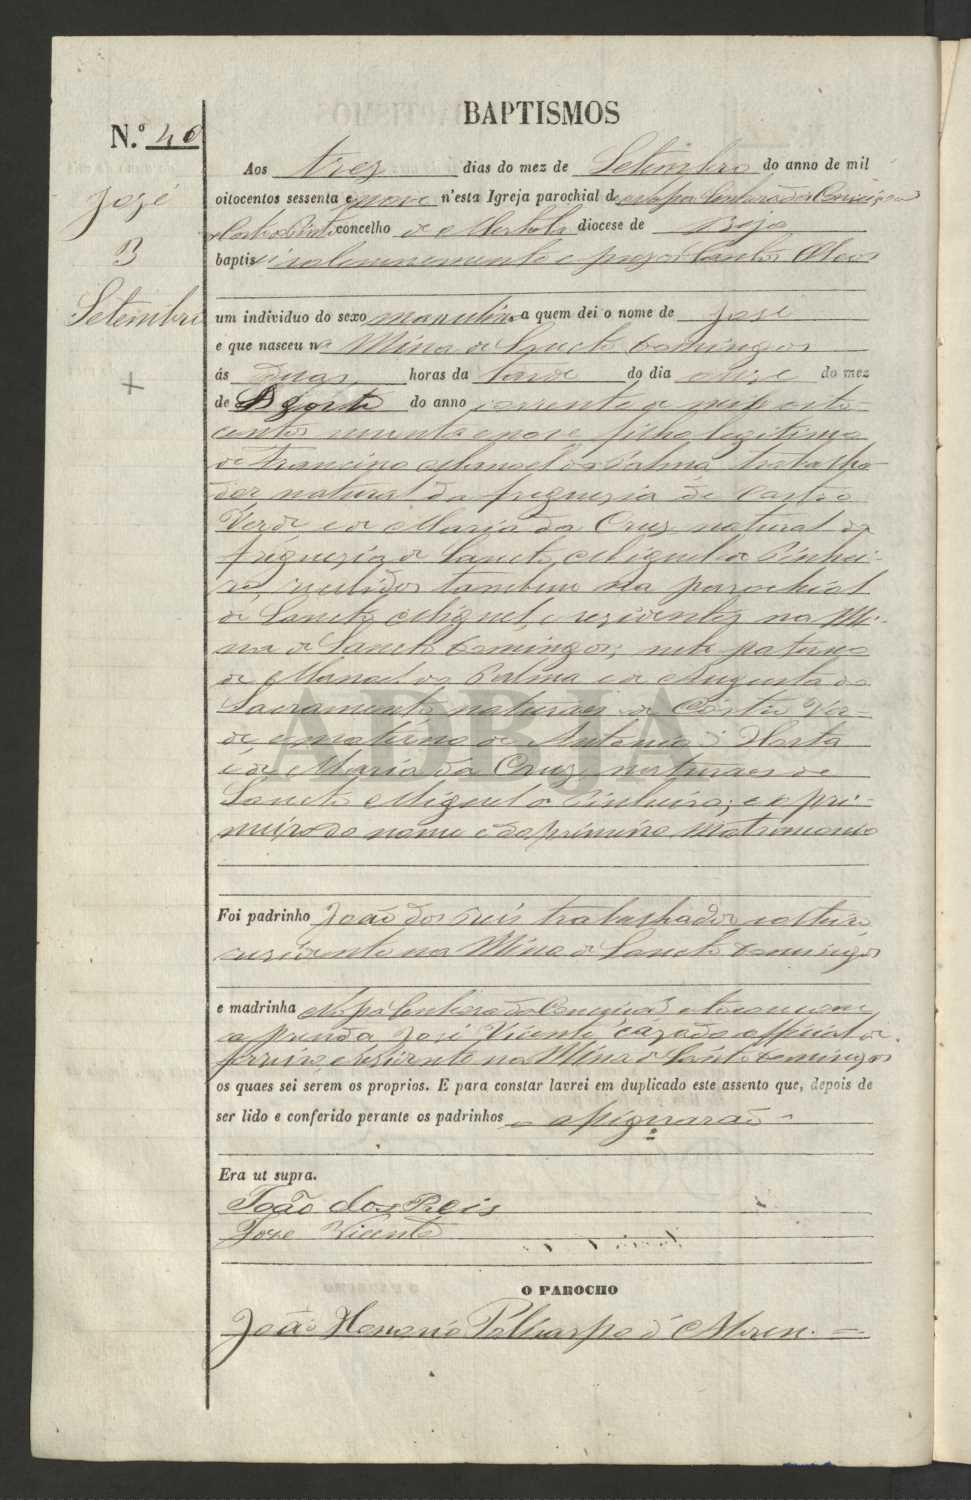 BAPTISMOS
N.º 40
José
3
Setembro
Aos tres dias do mez de Setembro do anno de mil
oitocentos sessenta e nove n'esta Igreja parochial de Nossa Senhora da Conceição
concelho de Mertola diocese de Beja
baptisei solemnemente e puz os Santos Oleos
um individuo do sexo masculino a quem dei o nome de José
e que nasceu na Mina de Sancto Domingos
ás duas horas da tarde do dia onze do mez
de Agosto do anno corrente de mil oito
centos sessenta e nove filho legitimo
de Francisco Manoel da Palma trabalha-
dor natural da freguezia de Castro
Verde e de Maria da Cruz natural da
freguezia de Sancto Miguel de Pinhei-
ro, recebidos tambem na parochial
de Sancto Miguel, e rezidentes na Mi-
na de Sancto Domingos; neto paterno
de Manoel da Palma e de Augusta do
Sacramento naturaes de Castro Ver-
de, e materno de Antonio d' Horta
e de Maria da Cruz, naturaes de
Sancto Miguel de Pinheiro; e o pri-
meiro do nome e do primeiro Matrimonio
Foi padrinho João dos Reis trabalhador solteiro
rezidente na Mina de Sancto Domingos
e madrinha Nossa Senhora da Conceição e tocou com
a prenda José Vicente cazado official de
ferreiro, e rezidente na Mina de Sancto Domingos
os quaes sei serem os proprios. E para constar lavrei em duplicado este assento que, depois de
ser lido e conferido perante os padrinhos o assignarão
Era ut supra.
João dos Reis
Jose Vicente
O PAROCHO
João Honorio Policarpo d'
ADBJA